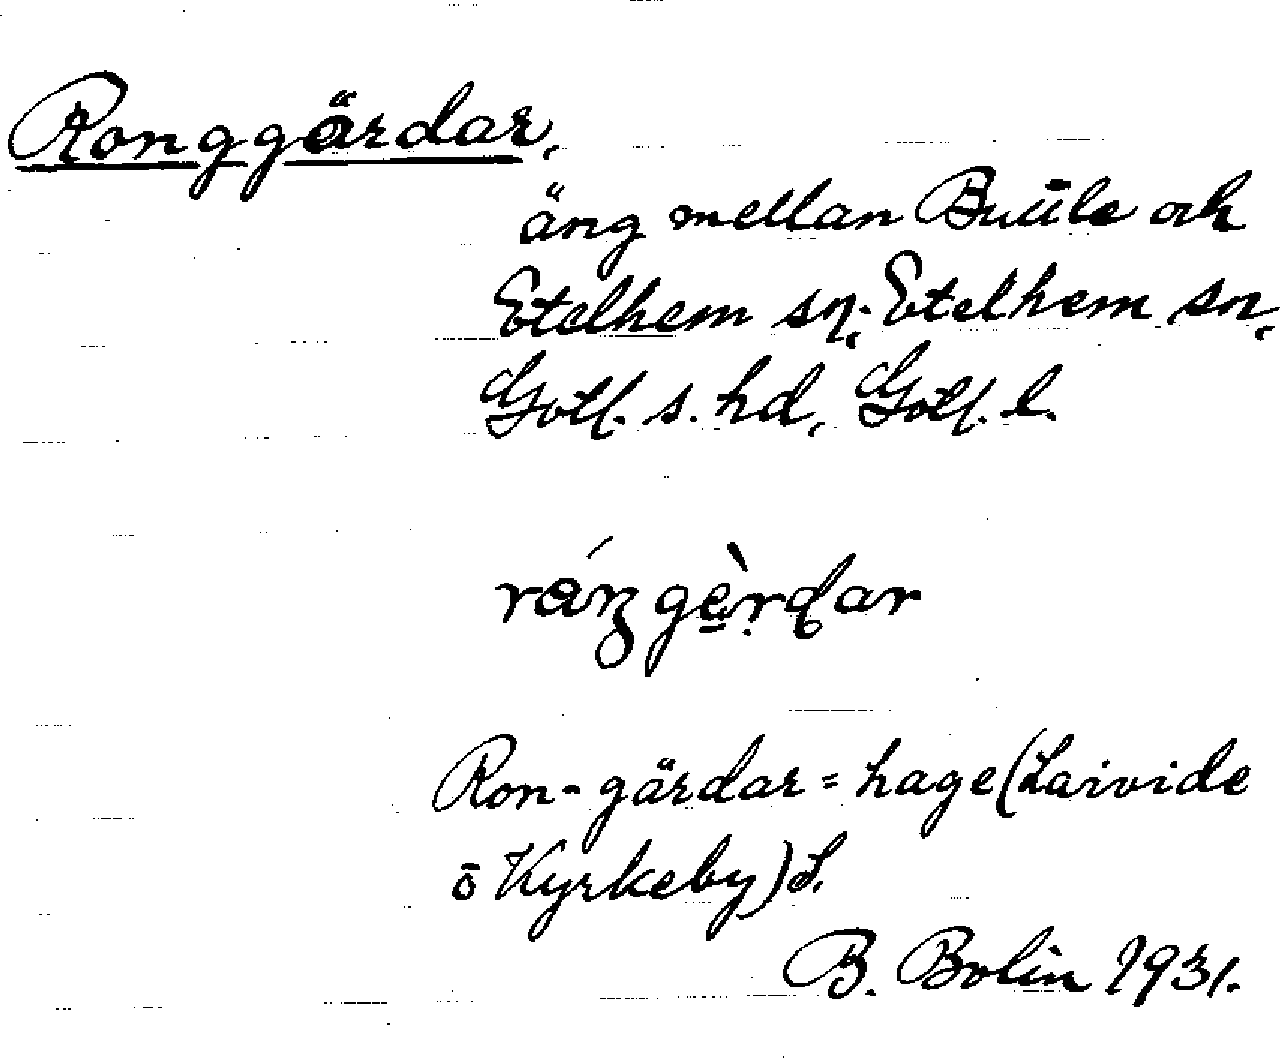 Ronggärdar,
äng mellan Buüle och
Etelhem sn; Etelhem sn,
Gotl. s. hd, Gotl. l.
Ron-gärdar = hage (Laivide
ō Kyrkeby) L.
B. Bolin 1931.